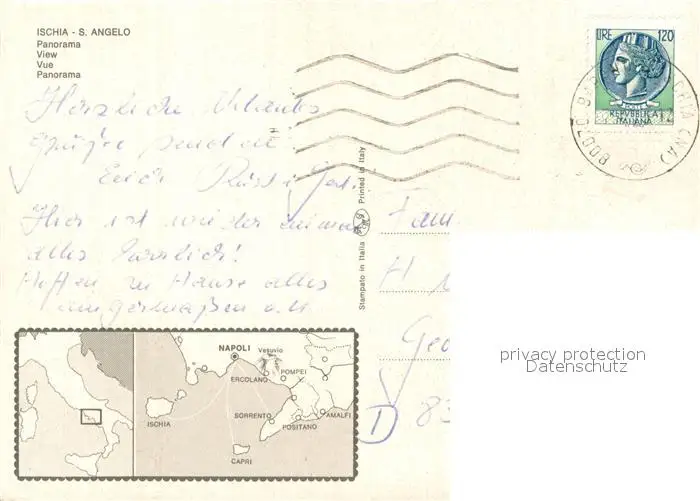 ISCHIA - S. ANGELO
Panorama
View
Vue
Panorama
Herzliche Urlaubs
grüße sendet
Euch
Hier ist wieder einmal
alles herrlich!
Hoffen zu Hause alles
einigermaßen o.K.
Stampato in Italia
Printed in Italy
LIRE 120
POSTE
REPVBBLICA
ITALIANA
80070
Fam
H
Geo
D 83
privacy protection
Datenschutz
NAPOLI
Vesuvio
ERCOLANO
POMPEI
ISCHIA
SORRENTO
POSITANO
AMALFI
CAPRI